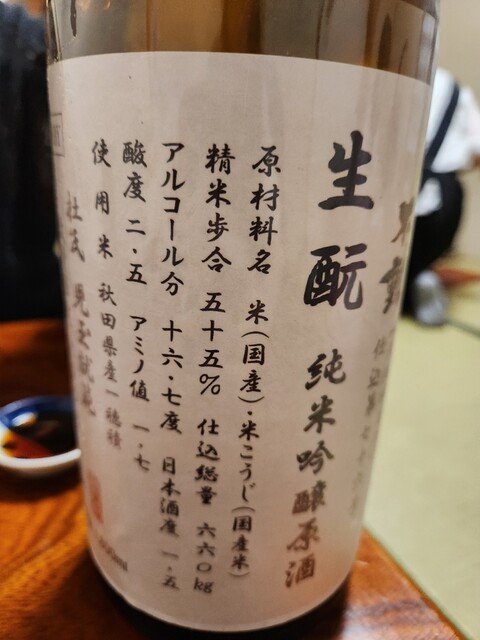 生酛 純米吟醸原酒
原材料名 米(国産)・米こうじ(国産米)
精米歩合 五十五% 仕込総量 六六〇kg
アルコール分 十六・七度 日本酒度 一・五
酸度 二・五 アミノ値 一・七
使用米 秋田県産一穂積
杜氏 児玉